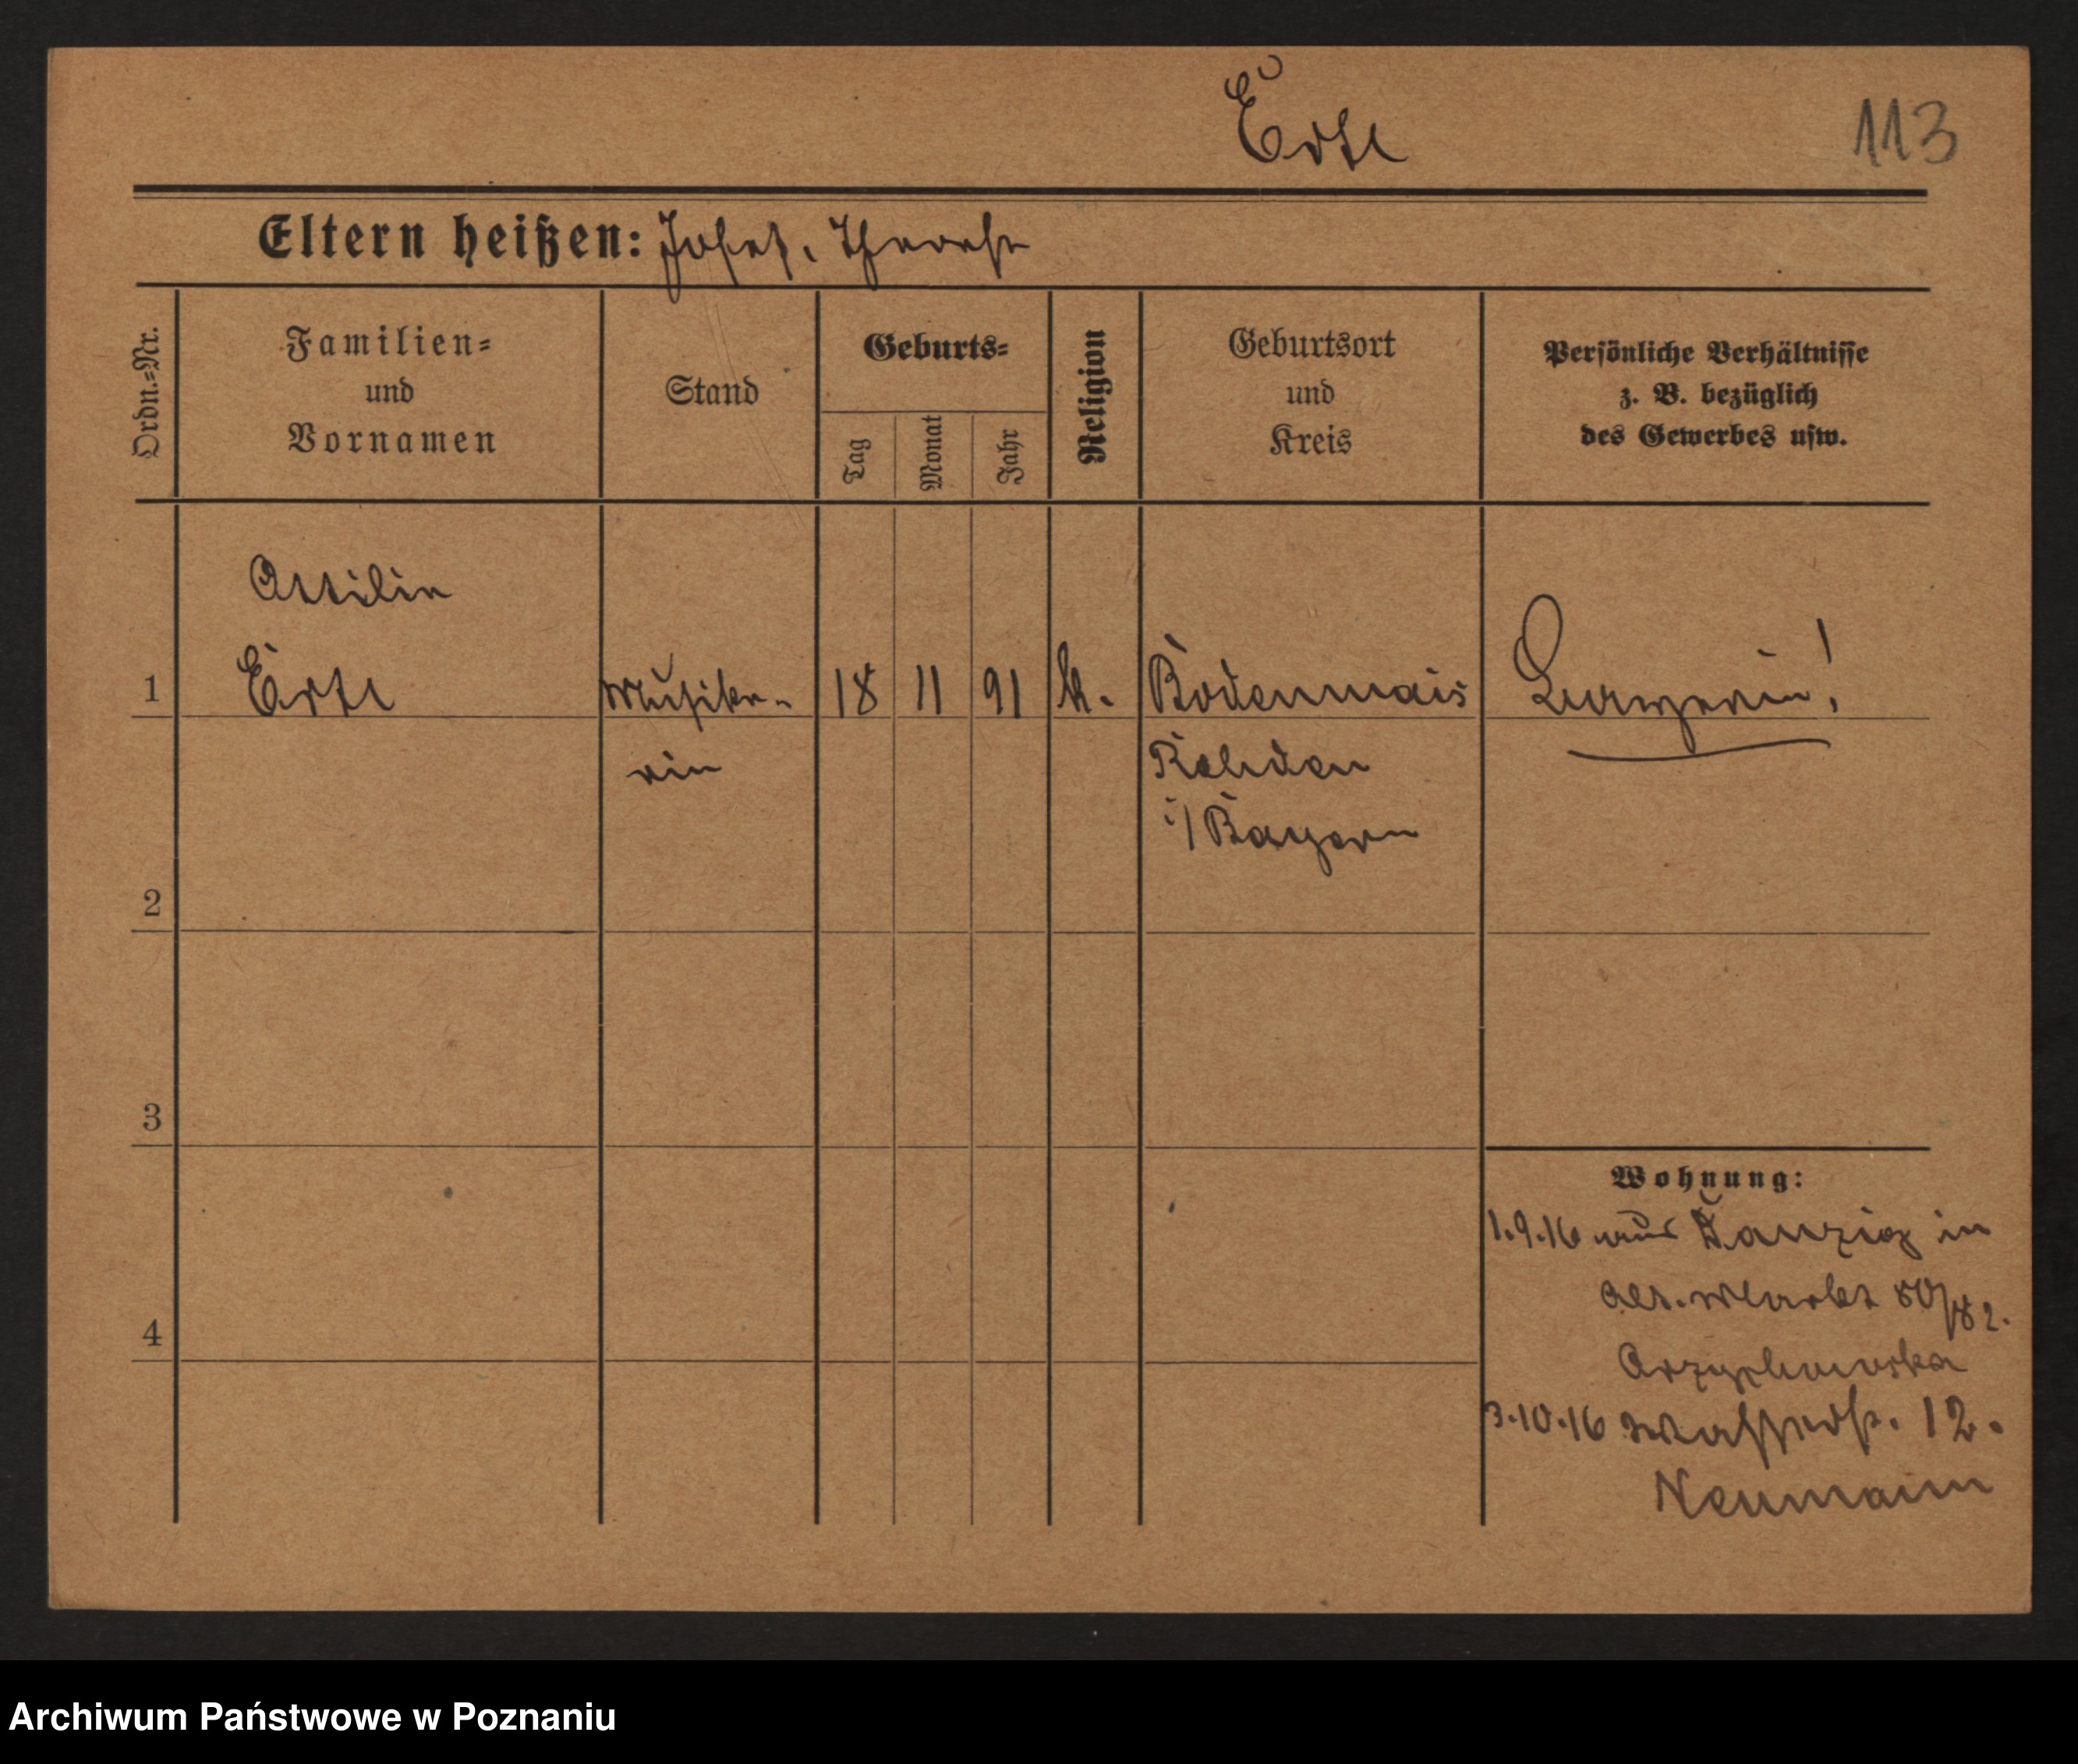 113
Eltern heißen: Josef, Therese
Ordn.=Nr.
Familien=
und
Vornamen
Stand
Geburts=
Tag
Monat
Jahr
Religion
Geburtsort
und
Kreis
Persönliche Verhältnisse
z. B. bezüglich
des Gewerbes usw.
1
Musike-
rin
18
11
91
k.
Bodenmais
i/Bayern
2
3
4
Wohnung:
1.9.16 aus Danzig in
Alt. Markt 80/82.
3.10.16 Wasserst. 12.
Neumann
Archiwum Państwowe w Poznaniu